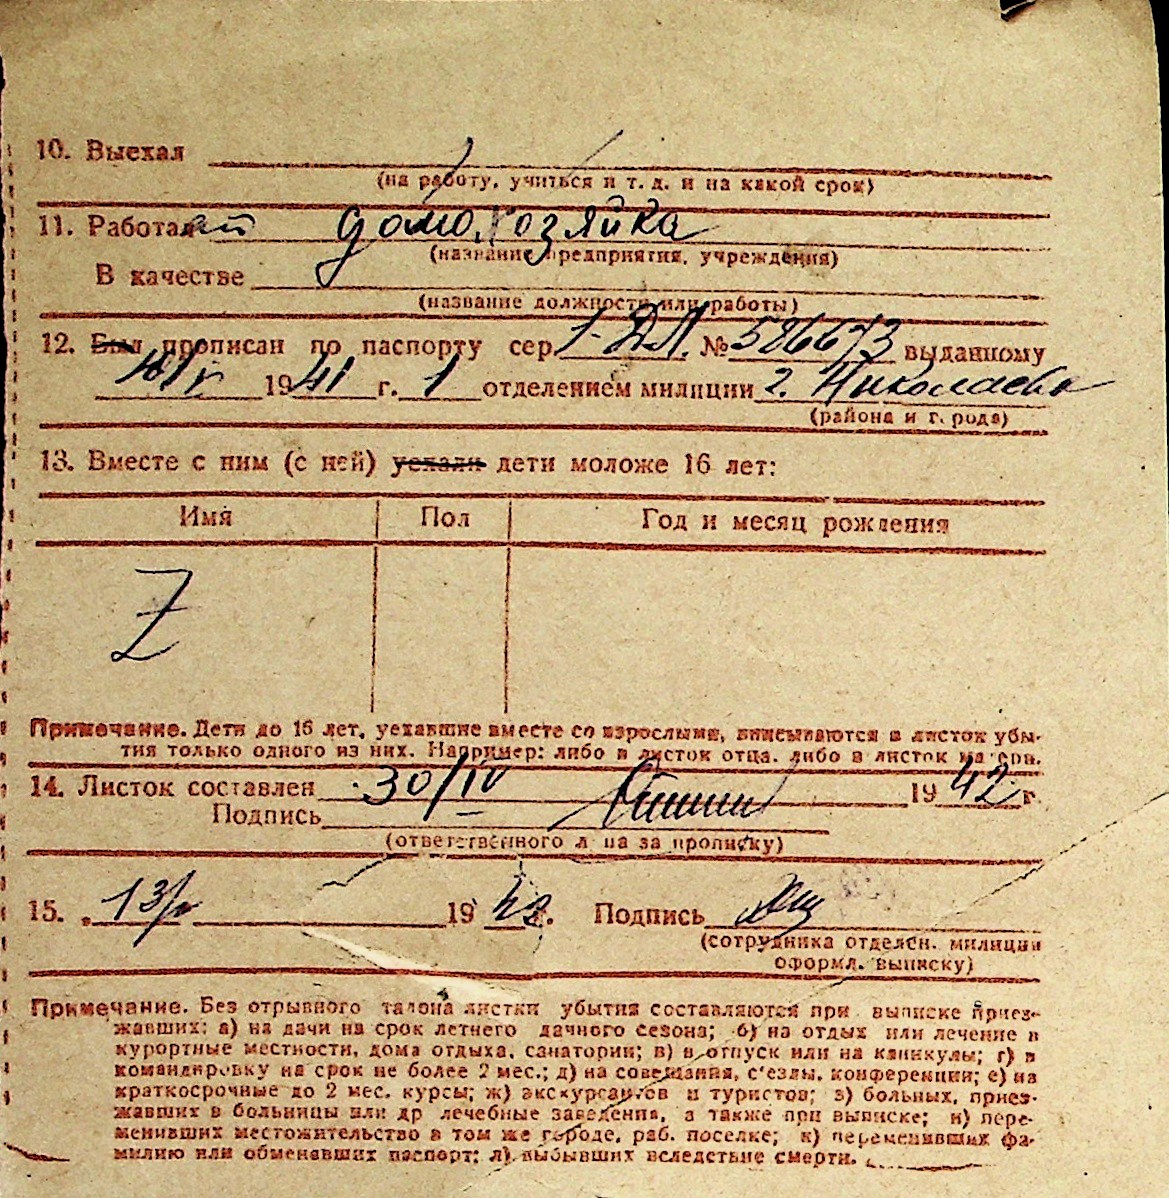 10. Выехал
(на работу, учиться и т. д. и на какой срок)
11. Работал домохозяйка
(название предприятия, учреждения)
В качестве
(название должности или работы)
12. Был прописан по паспорту сер. 1-ДЛ. № 586673 выданному
1941 г. 1 отделением милиции г. Николаева
(района и города)
13. Вместе с ним (с ней) уехали дети моложе 16 лет:
Имя Пол Год и месяц рождения
Z
Примечание. Дети до 16 лет, уехавшие вместе со взрослыми, вписываются в листок убы-
тия только одного из них. Например: либо в листок отца, либо в листок матери.
14. Листок составлен 30/IV 1942 г.
Подпись
(ответственного лица за прописку)
15. 13/ 19 г. Подпись
(сотрудника отделен. милиции
оформл. выписку)
Примечание. Без отрывного талона листки убытия составляются при выписке приез-
жавших: а) на дачи на срок летнего дачного сезона; б) на отдых или лечение в
курортные местности, дома отдыха, санатории; в) в отпуск или на каникулы; г) в
командировку на срок не более 2 мес.; д) на совещания, с'езды, конференции; е) на
краткосрочные до 2 мес. курсы; ж) экскурсантов и туристов; з) больных, приез-
жавших в больницы или др лечебные заведения, а также при выписке; и) пере-
менивших местожительство в том же городе, раб. поселке; к) переменивших фа-
милию или обменавших паспорт; л) выбывших вследствие смерти.